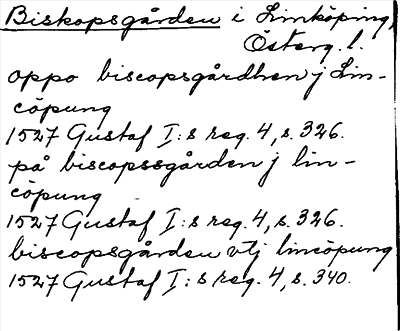 Biskopsgården i Linköping,
Österg. l.
oppo biscopsgårdhen j Lin-
cöpung
1527 Gustaf I:s reg. 4, s. 326.
på biscopssgården j lin-
cöpung
1527 Gustaf I:s reg. 4, s. 326.
biscopsgården vtj lincöpung
1527 Gustaf I:s reg. 4, s. 340.